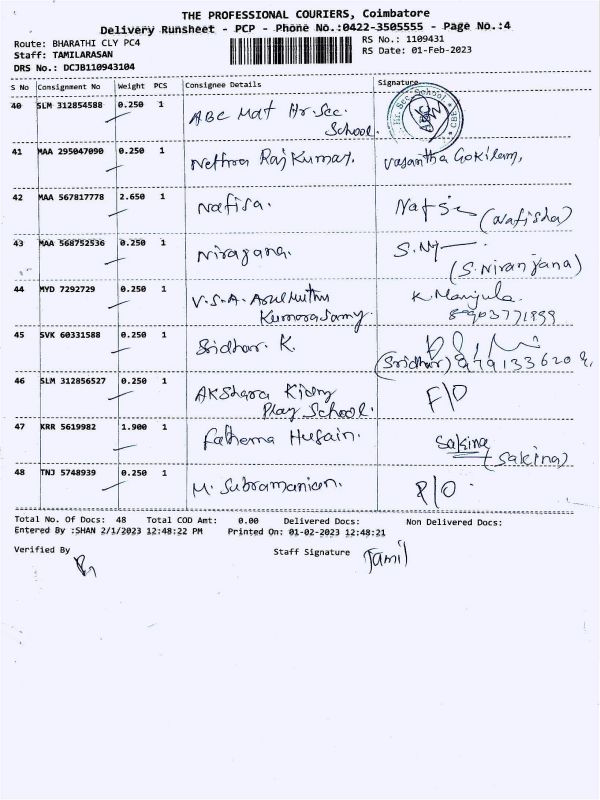 THE PROFESSIONAL COURIERS, Coimbatore
Delivery Runsheet - PCP - Phone No.:0422-3505555 - Page No.:4
Route: BHARATHI CLY PC4
RS No.: 1109431
Staff: TAMILARASAN
RS Date: 01-Feb-2023
DRS No.: DCJB110943104
S No Consignment No Weight PCS Consignee Details Signature
40 SLM 312854588 0.250 1 ABC Mat Hr. Sec. School.
Hr. Sec. School * CBE
41 MAA 295047090 0.250 1 Nethra Raj Kumar. Vasantha Gokilam,
42 MAA 567817778 2.650 1 Nafisa. (Nafisha)
43 MAA 568752536 0.250 1 Niragana. (S. Niranjana)
44 MYD 7292729 0.250 1 V.S.A. Arulmuthu K. Manjula.
Kumarasamy.
45 SVK 60331588 0.250 1 Sridhar. K.
(Sridhar)
46 SLM 312856527 0.250 1 Akshara Kidny F/O
Play School.
47 KRR 5619982 1.900 1 Fathema Husain. Sakina
(Sakina)
48 TNJ 5748939 0.250 1 M. Subramanian. P/O.
Total No. Of Docs: 48 Total COD Amt: 0.00 Delivered Docs: Non Delivered Docs:
Entered By :SHAN 2/1/2023 12:48:22 PM Printed On: 01-02-2023 12:48:21
Verified By Staff Signature Tamil